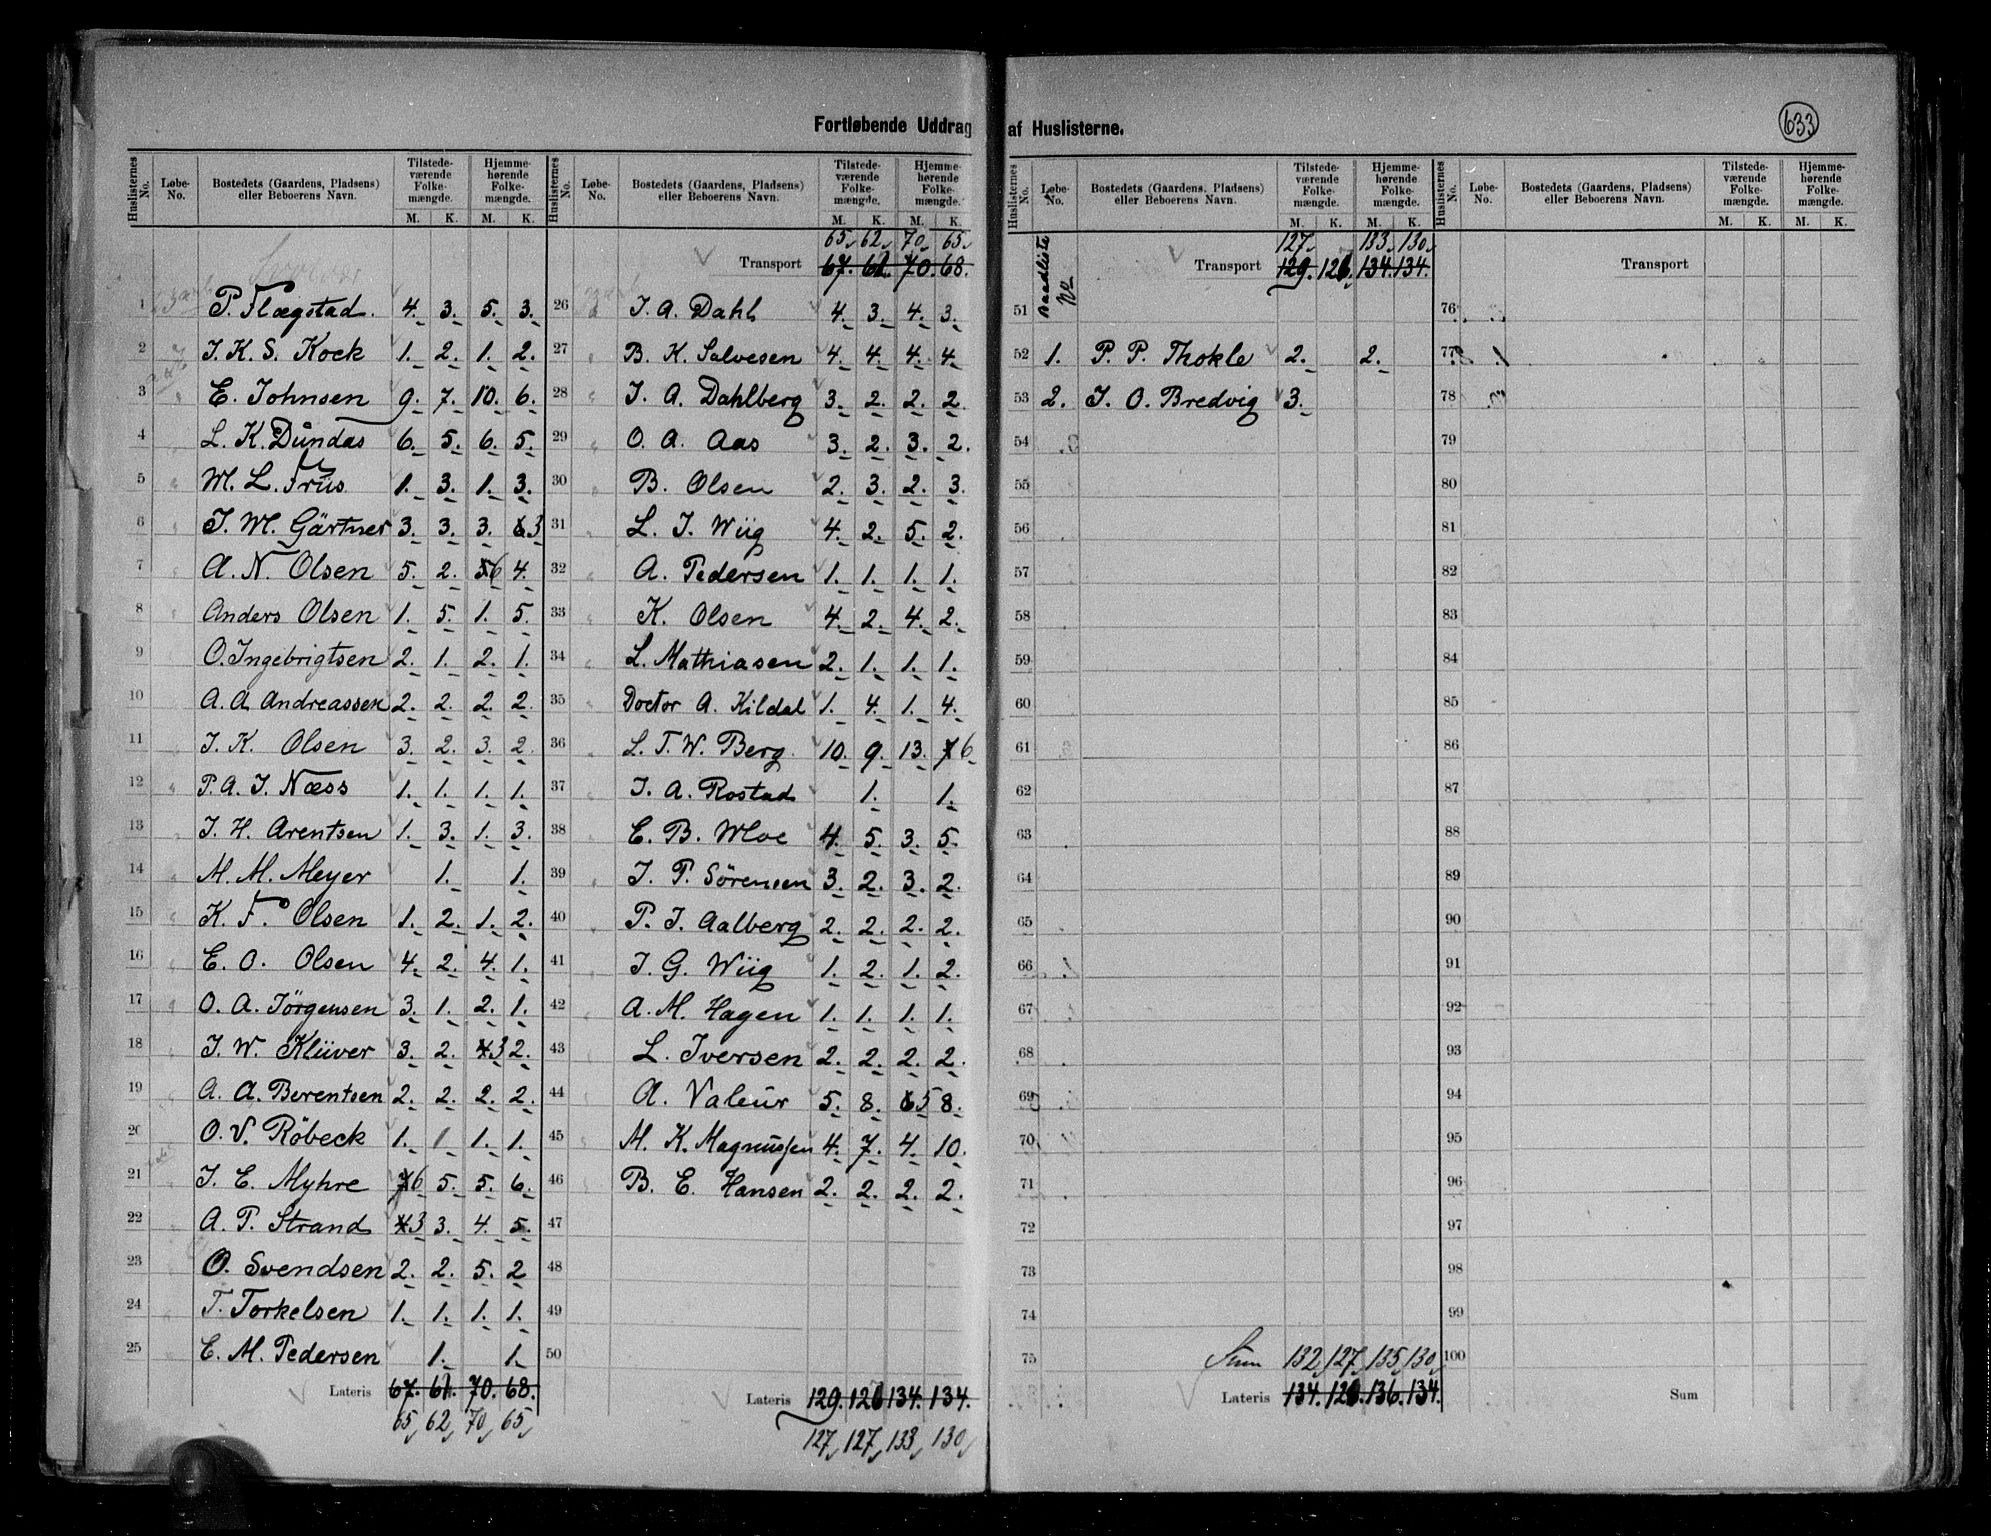 633
Fortløbende Uddrag af Huslisterne.
Huslisternes No. Løbe-No. Bostedets (Gaardens, Pladsens) eller Beboerens Navn. Tilstedeværende Folkemængde. M. K. Hjemmehørende Folkemængde. M. K.
1 P. Flægstad. 4. 3. 5. 3.
2 J. K. S. Kock 1. 2. 1. 2.
3 E. Johnsen 9. 7. 10. 6.
4 L. K. Dundas 6. 5. 6. 5.
5 M. L. Friis 1. 3. 1. 3.
6 J. M. Gärtner 3. 3. 3. 3
7 A. N. Olsen 5. 2. 6 4.
8 Anders Olsen 1. 5. 1. 5.
9 O. Ingebrigtsen 2. 1. 2. 1.
10 A. A. Andreassen 2. 2. 2. 2.
11 J. K. Olsen 3. 2. 3. 2.
12 P. A. J. Næss 1. 1. 1. 1.
13 J. H. Arentsen 1. 3. 1. 3.
14 M. M. Meyer 1. 1.
15 K. F. Olsen 1. 2. 1. 2.
16 E. O. Olsen 4. 2. 4. 1.
17 O. A. Jörgensen 3. 1. 2. 1.
18 J. W. Klüver 3. 2. 3 2.
19 A. A. Berentsen 2. 2. 2. 2.
20 O. V. Röbeck 1. 1 1. 1.
21 J. E. Myhre 6 5. 5. 6.
22 A. P. Strand 3 3. 4. 5.
23 O. Svendsen 2. 2. 5. 2
24 T. Torkelsen 1. 1. 1. 1.
25 E. M. Pedersen 1. 1.
Lateris 67. 61. 70. 68.
65 62 70 65
Huslisternes No. Løbe-No. Bostedets (Gaardens, Pladsens) eller Beboerens Navn. Tilstedeværende Folkemængde. M. K. Hjemmehørende Folkemængde. M. K.
65 62 70 65
Transport 67. 61. 70. 68.
26 J. A. Dahl 4. 3. 4. 3.
27 B. K. Salvesen 4. 4. 4. 4.
28 J. A. Dahlberg 3. 2. 2. 2.
29 O. A. Aas 3. 2. 3. 2.
30 B. Olsen 2. 3. 2. 3.
31 L. J. Wiig 4. 2. 5. 2.
32 A. Pedersen 1. 1. 1. 1.
33 K. Olsen 4. 2. 4. 2.
34 L. Mathiasen 2. 1. 1. 1.
35 Doctor A. Kildal 1. 4. 1. 4.
36 L. T. W. Berg. 10. 9. 13. 6
37 J. A. Rostad 1. 1.
38 E. B. Moe 4. 5. 3. 5.
39 J. P. Sörensen 3. 2. 3. 2.
40 P. J. Aalberg 2. 2. 2. 2.
41 J. G. Wiig 1. 2. 1. 2.
42 A. M. Hagen 1. 1. 1. 1.
43 L. Iversen 2. 2. 2. 2.
44 A. Valeur 5. 8. 5 8.
45 M. K. Magnussen 4. 7. 4. 10.
46 B. E. Hansen 2. 2. 2. 2.
47
48
49
50
Lateris 129. 126 134. 134.
127 127 133 130
Huslisternes No. Løbe-No. Bostedets (Gaardens, Pladsens) eller Beboerens Navn. Tilstedeværende Folkemængde. M. K. Hjemmehørende Folkemængde. M. K.
127 133 130
Transport 129. 126. 134. 134.
51 Baadliste No
52 1. P. P. Thokle 2. 2.
53 2. J. O. Bredvig 3.
54
55
56
57
58
59
60
61
62
63
64
65
66
67
68
69
70
71
72
73
74
75 Sum 132 127 135 130
Lateris 134. 126. 136. 134.
Huslisternes No. Løbe-No. Bostedets (Gaardens, Pladsens) eller Beboerens Navn. Tilstedeværende Folkemængde. M. K. Hjemmehørende Folkemængde. M. K.
Transport
76
77
78
79
80
81
82
83
84
85
86
87
88
89
90
91
92
93
94
95
96
97
98
99
100
Sum